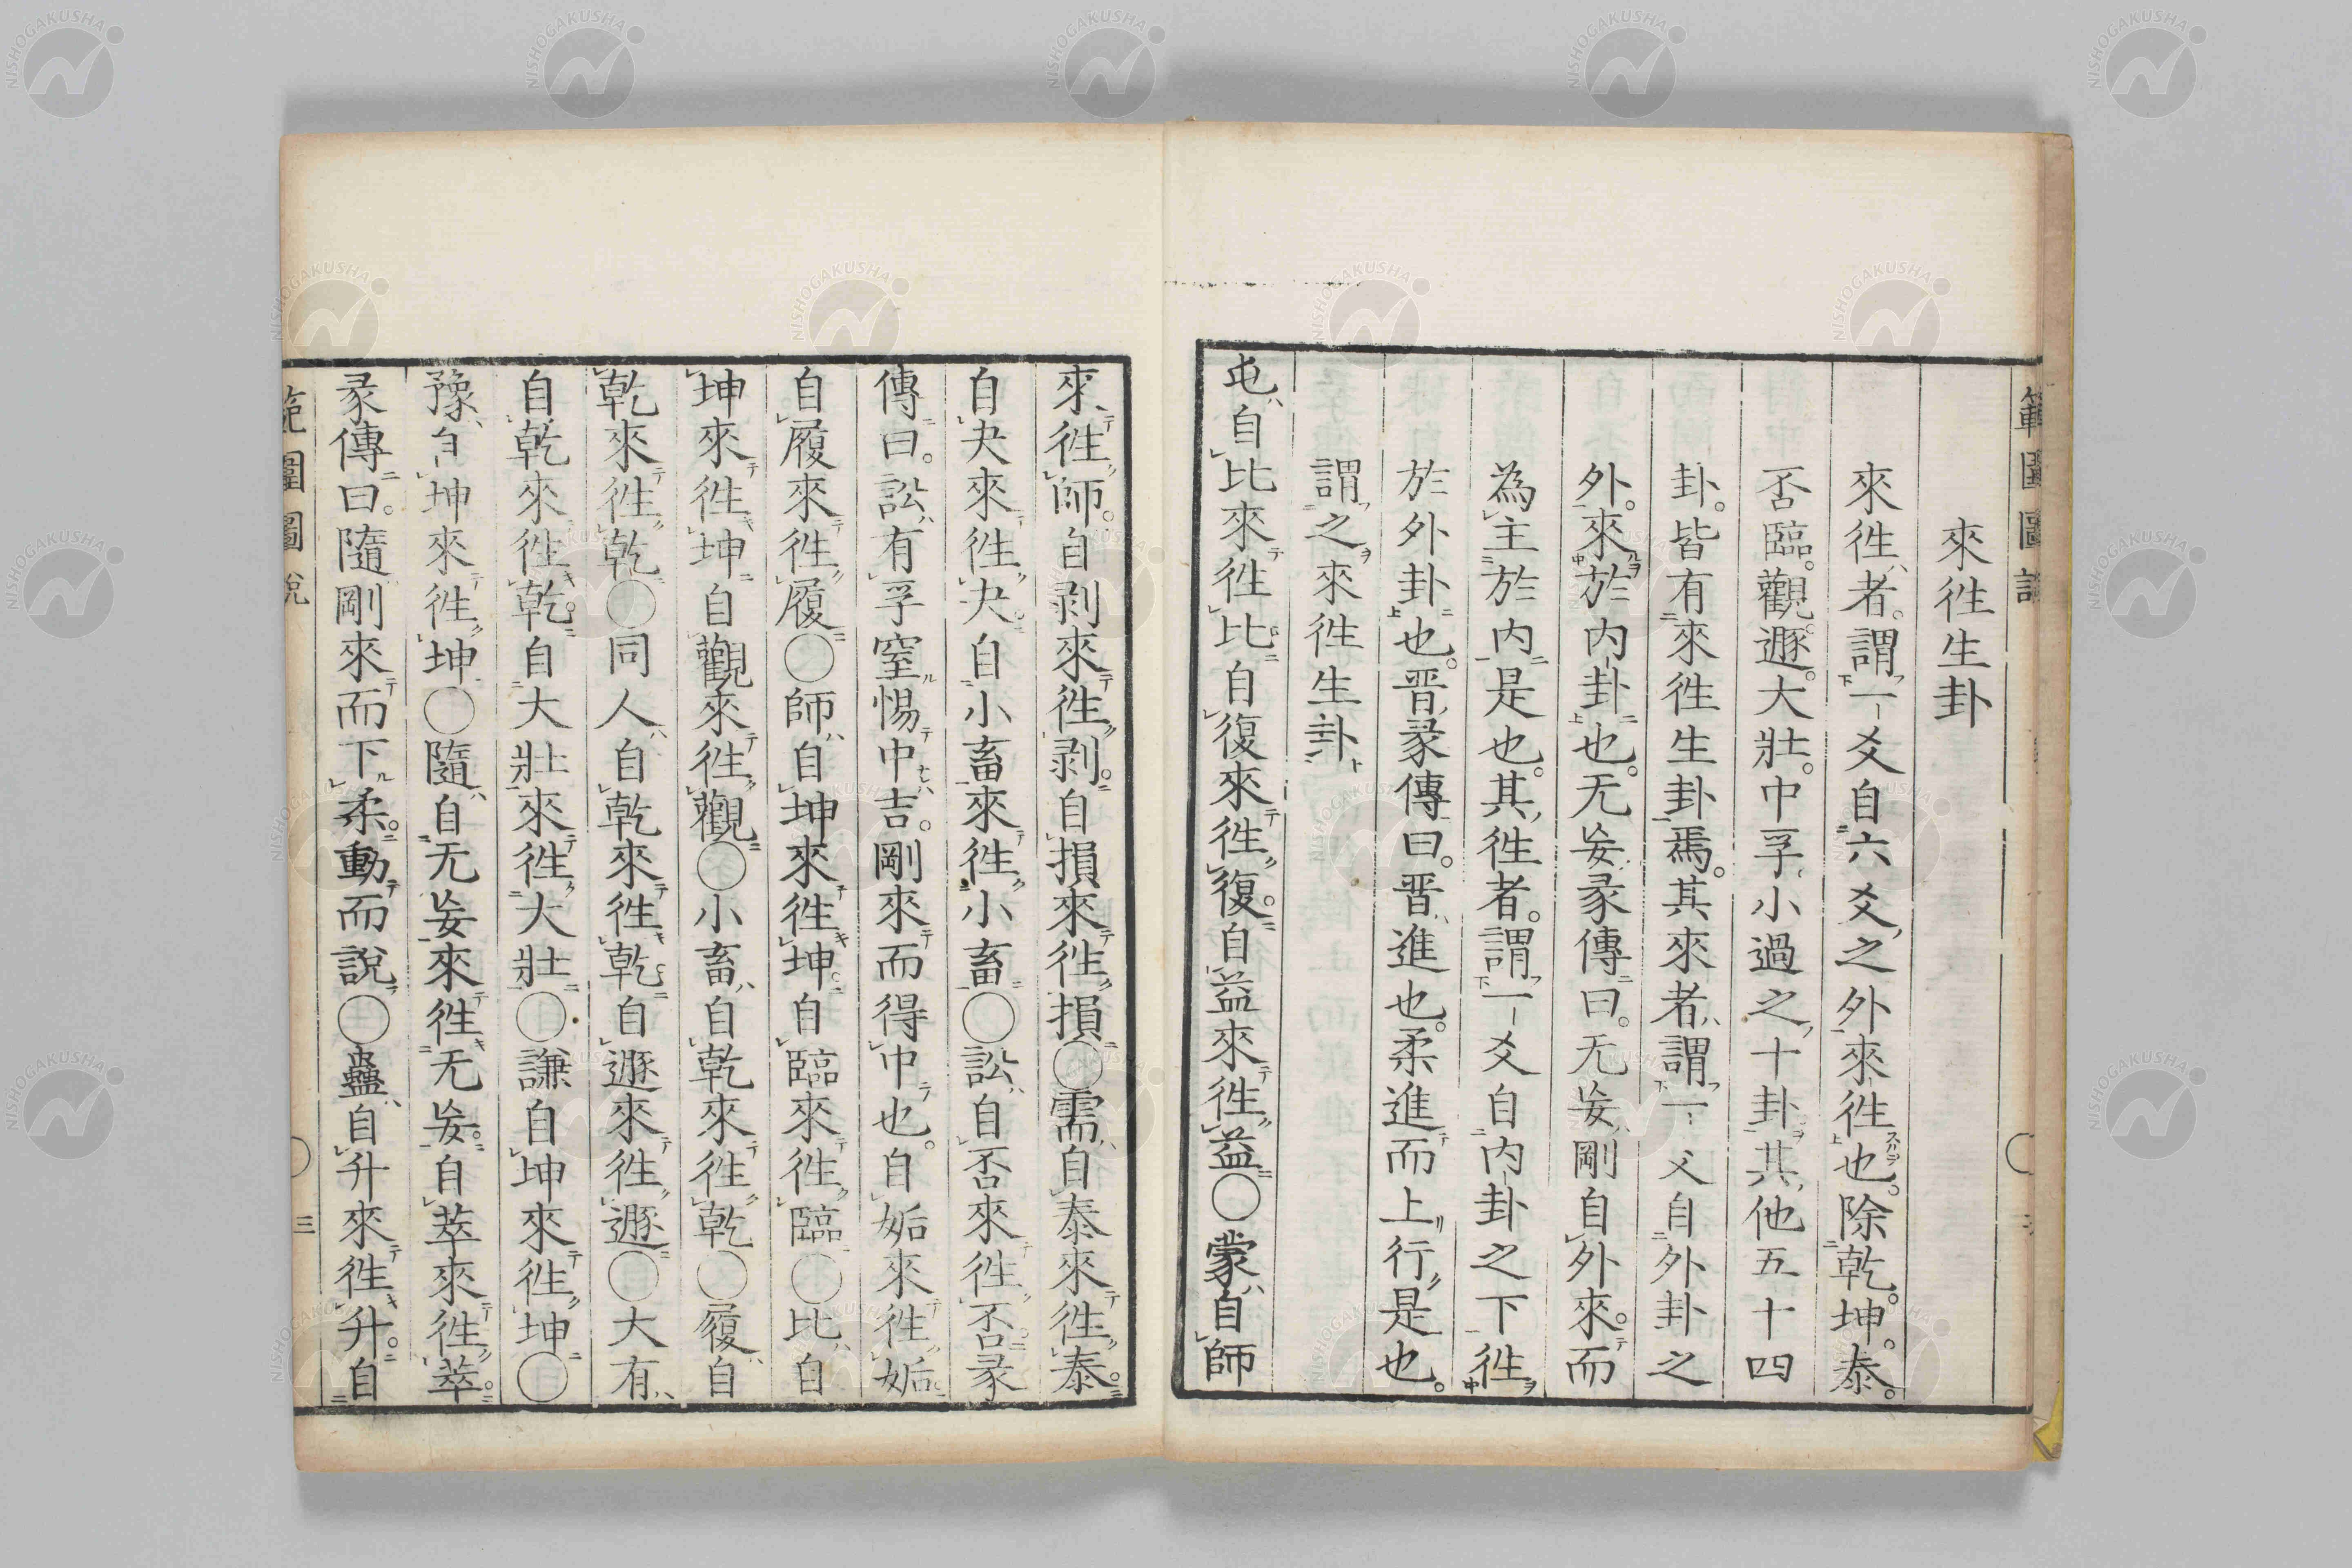 範圍圖說
來徃生卦
來徃者。謂一爻自六爻之外來徃也。除乾。坤。泰。
否臨。觀。遯。大壯。中孚小過之十卦其他五十四
卦。皆有來徃生卦焉。其來者謂一爻自外卦之
外。來於内卦也。无妄彖傳曰。无妄剛自外來。而
為主於内是也。其徃者。謂一爻自内卦之下徃
於外卦也。晋彖傳曰。晋進也。柔進而上行是也。
謂之來徃生卦
屯自比來徃比自復來徃復。自益來徃益〇蒙自師
來徃師。自剥來徃剥。自損來徃損〇需自泰來徃泰。
自夬來徃夬。自小畜來徃小畜〇訟自否來徃否彖
傳曰。訟有孚窒惕中吉。剛來而得中也。自姤來徃姤。
自履來徃履〇師自坤來徃坤。自臨來徃臨〇比自
坤來徃坤自觀來徃觀〇小畜自乾來徃乾〇履自
乾來徃乾〇同人自乾來徃乾。自遯來徃遯〇大有
自乾來徃乾。自大壯來徃大壯〇謙自坤來徃坤〇
豫自坤來徃坤〇隨自无妄來徃无妄。自萃來徃萃。
彖傳曰。隨剛來而下柔。動而說〇蠱自升來徃升。自
範圍圖說
三
NISHOGAKUSHA